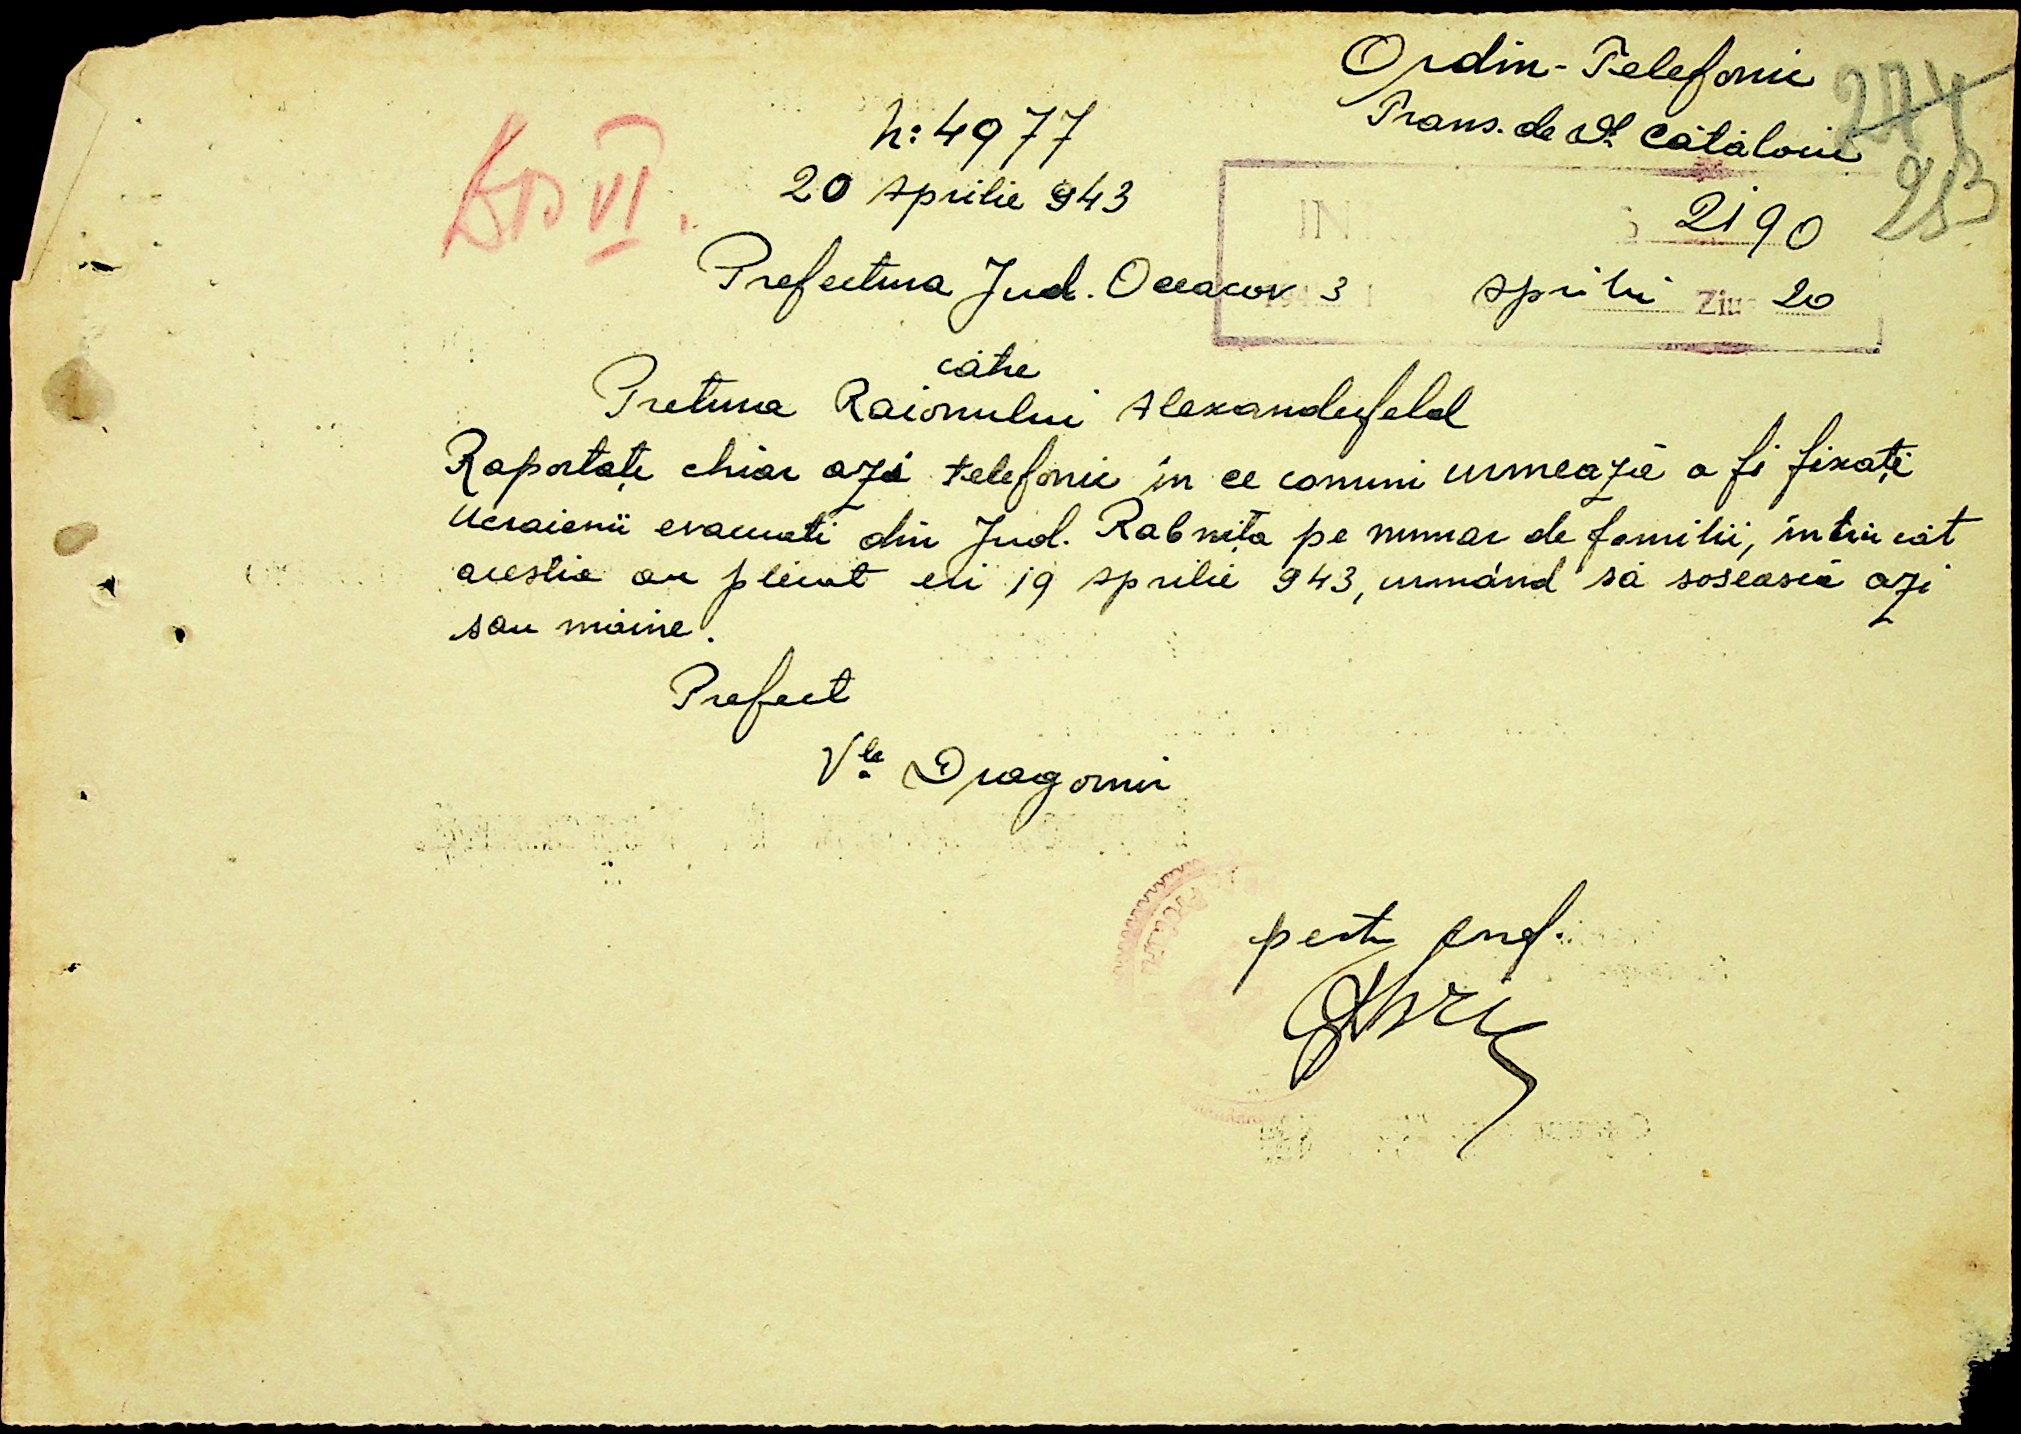 Ordin-Telefonic
Trans. de Dl. Cătăloiu
274
253
N: 4977
20 Aprilie 943
VI.
IN
2190
3 Aprilie Ziu 20
Prefectura Jud. Oceacov
către
Pretura Raionului Alexanderfeld
Raportați chiar azi telefonic în ce comuni urmează a fi fixați
Ucraienii evacuați din Jud. Rabnița pe numar de familii, întru cât
acestia au plecat eri 19 Aprilie 943, urmând să sosească azi
sau mâine.
Prefect
V^le Dragomir